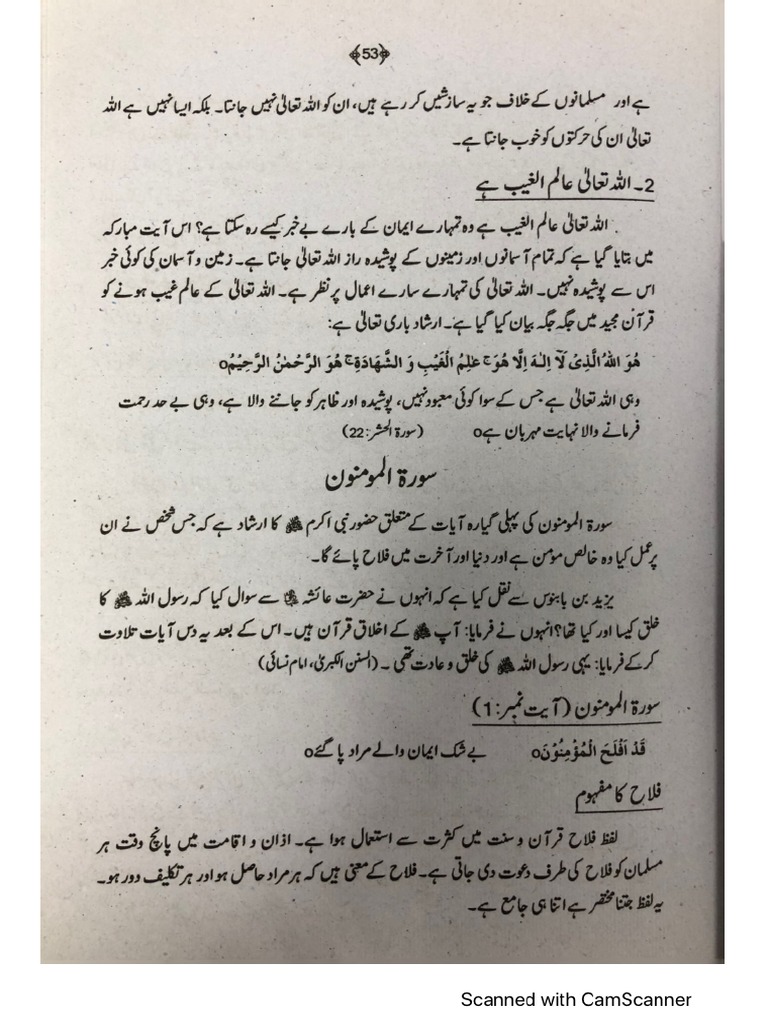 ﴿53﴾
ہے اور مسلمانوں کے خلاف جو یہ سازشیں کر رہے ہیں، ان کو اللہ تعالیٰ نہیں جانتا۔ بلکہ ایسا نہیں ہے اللہ
تعالیٰ ان کی حرکتوں کو خوب جانتا ہے۔
2۔ اللہ تعالیٰ عالم الغیب ہے
اللہ تعالیٰ عالم الغیب ہے وہ تمہارے ایمان کے بارے بے خبر کیسے رہ سکتا ہے؟ اس آیت مبارکہ
میں بتایا گیا ہے کہ تمام آسمانوں اور زمینوں کے پوشیدہ راز اللہ تعالیٰ جانتا ہے۔ زمین و آسمان کی کوئی خبر
اس سے پوشیدہ نہیں۔ اللہ تعالیٰ کی تمہارے سارے اعمال پر نظر ہے۔ اللہ تعالیٰ کے عالم غیب ہونے کو
قرآن مجید میں جگہ جگہ بیان کیا گیا ہے۔ ارشاد باری تعالیٰ ہے:
هُوَ اللّٰهُ الَّذِىْ لَآ اِلٰـهَ اِلَّا هُوَ ۚ عٰلِمُ الْغَيْبِ وَ الشَّهَادَةِ ۚ هُوَ الرَّحْمٰنُ الرَّحِيْمُo
وہی اللہ تعالیٰ ہے جس کے سوا کوئی معبود نہیں، پوشیدہ اور ظاہر کو جاننے والا ہے، وہی بے حد رحمت
فرمانے والا نہایت مہربان ہےo (سورۃ الحشر:22)
سورۃ المومنون
سورۃ المومنون کی پہلی گیارہ آیات کے متعلق حضور نبی اکرم ﷺ کا ارشاد ہے کہ جس شخص نے ان
پر عمل کیا وہ خالص مؤمن ہے اور دنیا اور آخرت میں فلاح پائے گا۔
یزید بن بابنوس سے نقل کیا ہے کہ انہوں نے حضرت عائشہ ؓ سے سوال کیا کہ رسول اللہ ﷺ کا
خلق کیسا اور کیا تھا؟ انہوں نے فرمایا: آپ ﷺ کے اخلاق قرآن ہیں۔ اس کے بعد یہ دس آیات تلاوت
کر کے فرمایا: یہی رسول اللہ ﷺ کی خلق و عادت تھی ۔ (السنن الکبریٰ، امام نسائی)
سورۃ المومنون (آیت نمبر:1)
قَدْ اَفْلَحَ الْمُؤْمِنُوْنَo بے شک ایمان والے مراد پا گئےo
فلاح کا مفہوم
لفظ فلاح قرآن و سنت میں کثرت سے استعمال ہوا ہے۔ اذان و اقامت میں پانچ وقت ہر
مسلمان کو فلاح کی طرف دعوت دی جاتی ہے۔ فلاح کے معنی ہیں کہ ہر مراد حاصل ہو اور ہر تکلیف دور ہو۔
یہ لفظ جتنا مختصر ہے اتنا ہی جامع ہے۔
Scanned with CamScanner